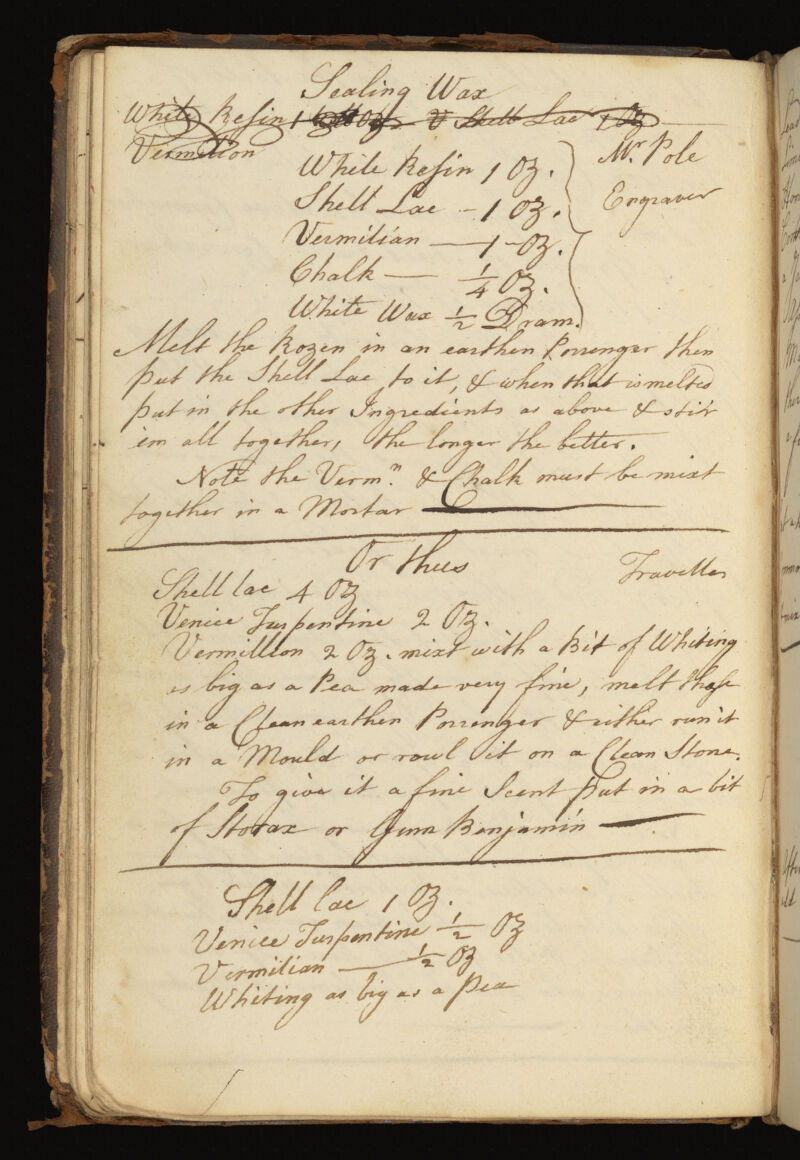 Sealing Wax
White Resin 1 Oz Shell Lac 1 Oz
Vermilion
White Resin 1 Oz. Mr. Pole
Shell Lac - 1 Oz. Engraver
Vermilian — 1 - Oz.
Chalk — 1/4 Oz.
White Wax 1/2 Dram.
Melt the Rozen in an earthen Porrenger then
put the Shell Lac to it, & when that is melted
put in the other Ingredients as above & stir
'em all together, the longer the better.
Note the Verm.n & Chalk must be mixt
together in a Mortar
Or thus Traveller
Shell lac 4 Oz
Venice Turpentine 2 Oz.
Vermillion 2 Oz. mixt with a Bit of Whiting
as big as a Pea made very fine, melt these
in a Clean earthen Porrenger & either run it
in a Mould or rowl it on a Clean Stone.
To give it a fine Scent put in a bit
of Storax or Gum Benjamin
Shell lac 1 Oz.
Venice Turpentine 1/2 Oz
Vermilian — 1/2 Oz
Whiting as big as a Pea